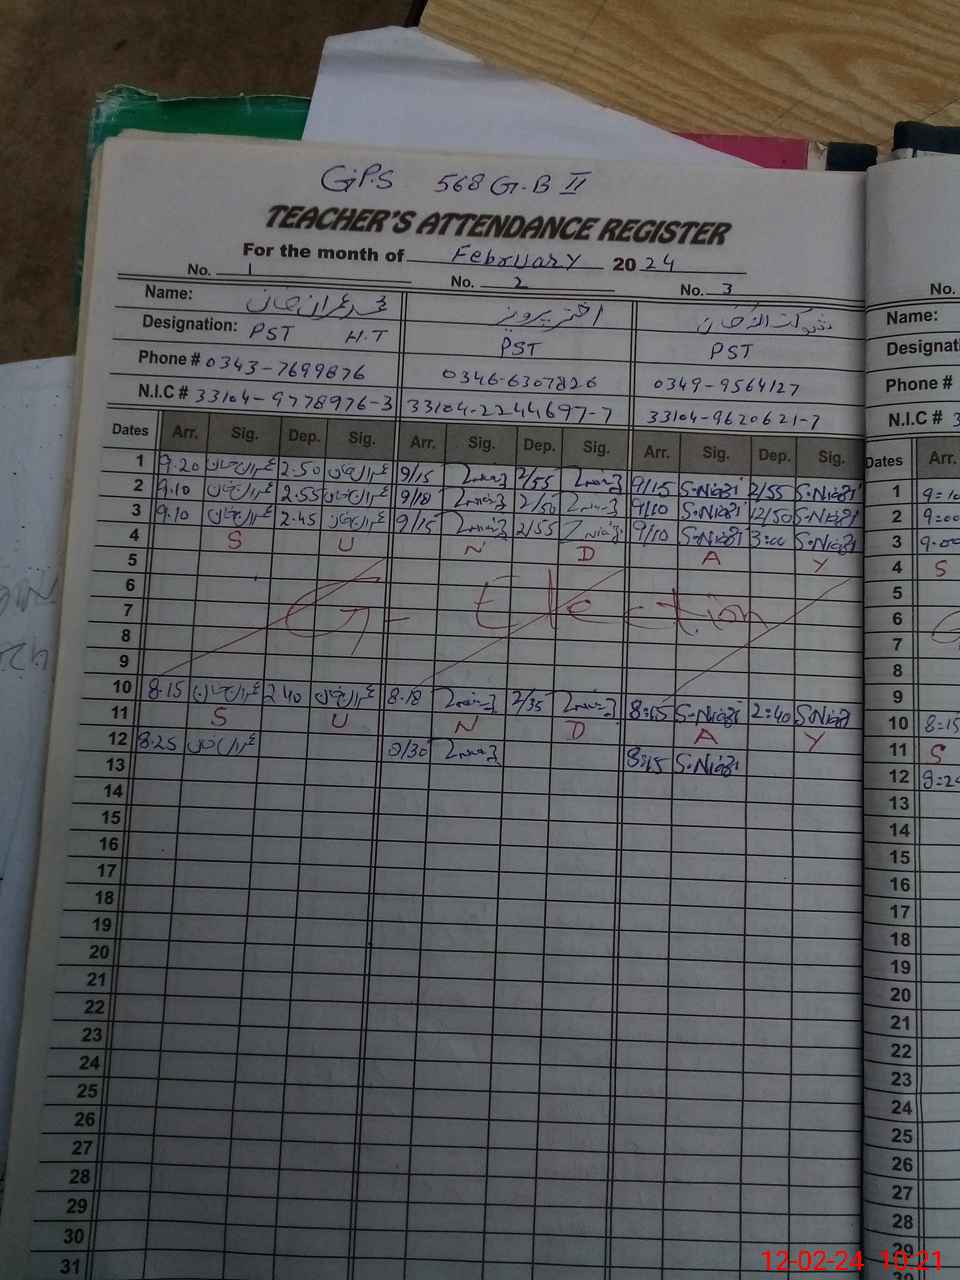 GPS 568 G.B II
TEACHER'S ATTENDANCE REGISTER
For the month of February 2024
No. 1 No. 2 No. 3
Name: محمد عمران خان اختر پرویز
Designation: PST H.T PST PST
Phone # 0343-7699876 0346-6307826 0349-9564127
N.I.C # 33104-9778976-3 33104-2244697-7 33104-9620621-7
Dates Arr. Sig. Dep. Sig. Arr. Sig. Dep. Sig. Arr. Sig. Dep. Sig.
1 9.20 2.50 9/15 2/55 9/15 S.Niazi 2/55 S.Niazi
2 9.10 2.55 9/18 2/50 9/10 S.Niazi 12/50 S.Niazi
3 9.10 2.45 9/15 2/55 9/10 S.Niazi 3:00 S.Niazi
4 S U N D A Y
5
6
7 G- Election
8
9
10 8.15 2.40 8.18 2/35 8:15 S.Niazi 2:40 S.Niazi
11 S U N D A Y
12 8.25 8/30 8:15 S.Niazi
13
14
15
16
17
18
19
20
21
22
23
24
25
26
27
28
29
30
31
No.
Name:
Phone #
N.I.C # 3
Dates Arr.
1
2 9=00
3 9.00
4 S
5
6
7
8
9
10 8=15
11 S
12
13
14
15
16
17
18
19
20
21
22
23
24
25
26
27
28
29
12-02-24 10:21